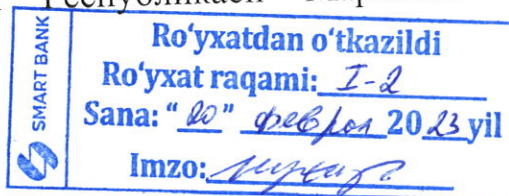 Республикаси
SMART BANK
Ro'yxatdan o'tkazildi
Ro'yxat raqami: I-2
Sana: "20" феврал 2023 yil
Imzo: